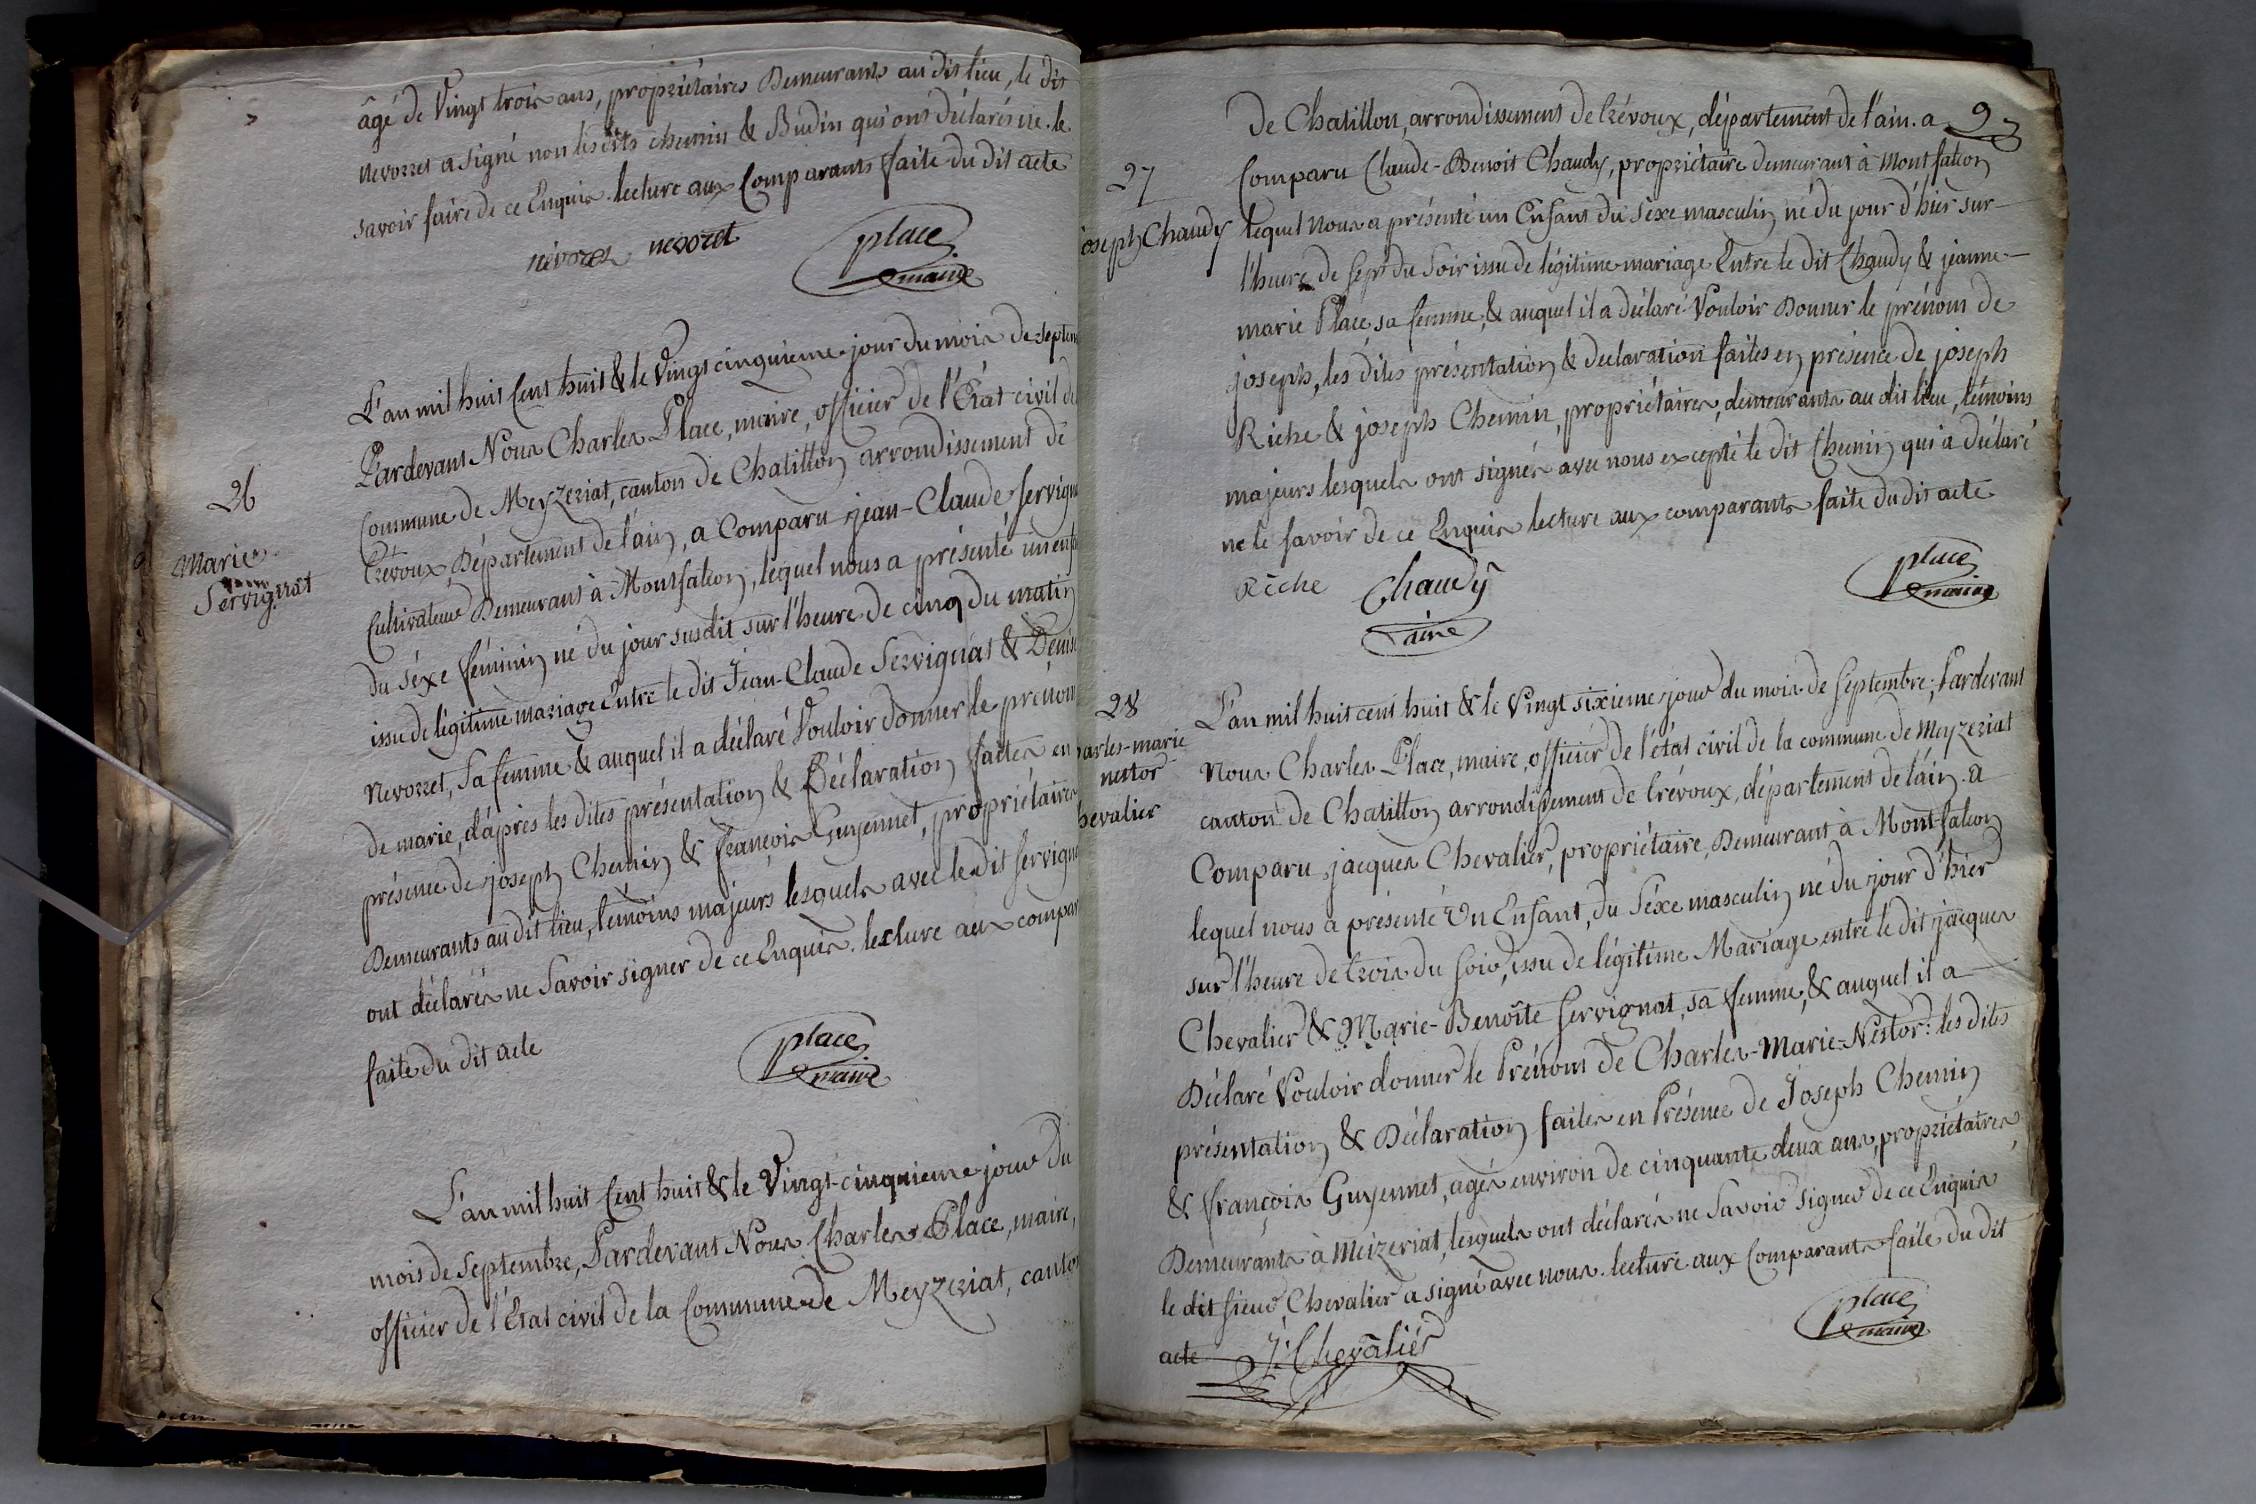 âgé de Vingt trois ans, propriétaires Demeurants au dit lieu, le dit
nevorret a signé non les dits chemin & Budin qui ont déclarés ne le
savoir faire de ce Enquis. lecture aux Comparants faite du dit acte
névoret nevoret place
maire
26
Marie
Servignat
L'an mil huit Cent huit & le Vingt cinquieme jour du mois de septem
Pardevant Nous Charles Place, maire, officier de l'Etat civil de
Commune de Meyzeriat, canton de Chatillon arrondissement de
Trévoux, Département de l'ain, a Comparu jean-Claude Servigna
Cultivateur Demeurant à Montfalcon, lequel nous a présenté un enfa
du séxe féminin né du jour susdit sur l'heure de cinq du matin
issu de légitime mariage Entre le dit Jean-Claude Servignat & Denise
Nevorret, sa femme & auquel il a déclaré Vouloir donner le prenom
de marie, d'après les dites présentation & Déclaration faites en
présence de joseph Chemin & françois Guyennet, propriétaires
Demeurants au dit lieu, témoins majeurs lesquels avec le dit Servigna
ont déclarés ne Savoir signer de ce Enquis. lecture aux compar
faite du dit acte
place
maire
L'an mil huit Cent huit & le Vingt-cinquieme jour du
mois de Septembre, Pardevant Nous Charles Place, maire,
officier de l'Etat civil de la Commune de Meyzeriat, canton
9
de Chatillon, arrondissement de Trévoux, département de l'ain. a
27
joseph Chaudy
Comparu Claude-Benoit Chaudy, propriétaire demeurant à Montfalcon
lequel Nous a présenté un Enfant du séxe masculin né du jour d'hier sur
l'heure de sept du Soir issu de légitime mariage Entre le dit Chaudy & jeanne
marie Place sa femme, & auquel il a déclaré Vouloir Donner le prénom de
joseph, les dites présentation & declaration faites en présence de joseph
Riche & joseph Chemin, propriétaires, demeurants au dit lieu, témoins
majeurs lesquels ont signés avec nous excepté le dit Chemin qui a déclaré
ne le savoir de ce Enquis lecture aux comparants faite du dit acte
Riche Chaudy place
ainé maire
28
arles-marie
nestor
hevalier
L'an mil huit cent huit & le Vingt sixieme jour du mois de Septembre; Pardevant
Nous Charles Place, maire, officier de l'état civil de la commune de Meyzeriat
canton de Chatillon arrondissement de Trévoux, département de l'ain. a
Comparu jacques Chevalier, propriétaire, Demeurant à Montfalcon
lequel nous a présenté Un Enfant, du Séxe masculin né du jour d'hier
sur l'heure de trois du soir, issu de légitime Mariage entre le dit jacques
Chevalier & Marie-Benoîte Servignat, sa femme, & auquel il a
Déclaré Vouloir donner le Prénom de Charles-Marie-Nestor: les dites
présentation & Déclaration faites en Présence de Joseph Chemin
& françois Guyennet, agés environ de cinquante deux ans, propriétaires,
Demeurants à Meizeriat, lesquels ont déclarés ne Savoir signer de ce Enquis
le dit sieur Chevalier a signé avec nous. lecture aux Comparants faite du dit
acte J. Chevalier place
maire